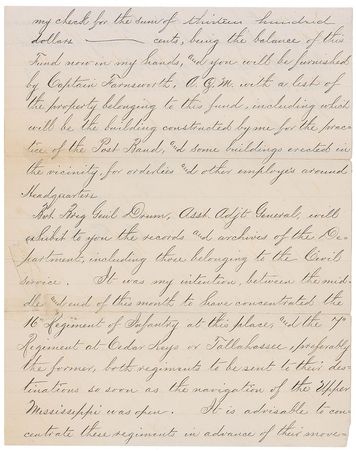 my check for the sum of thirteen hundred
dollars ——— cents, being the balance of this
Fund now in my hands, and you will be furnished
by Captain Farnsworth, A. Q. M. with a list of
the property belonging to this fund, including which
will be the building constructed by me for the prac-
tice of the Post Band, and some buildings erected in
the vicinity, for orderlies and other employes around
Headquarters
Bvt Brig Genl Drum, Asst. Adjt General, will
exhibit to you the records and archives of the De-
partment, including those belonging to the Civil
service. It was my intention, between the mid-
dle and end of this month to have concentrated the
16th Regiment of Infantry at this place, and the 7th
Regiment at Cedar Keys or Tallahassee, preferably
the former, both regiments to be sent to their des-
tinations so soon as the navigation of the Upper
Mississippi was open. It is advisable to con-
centrate these regiments in advance of their move-